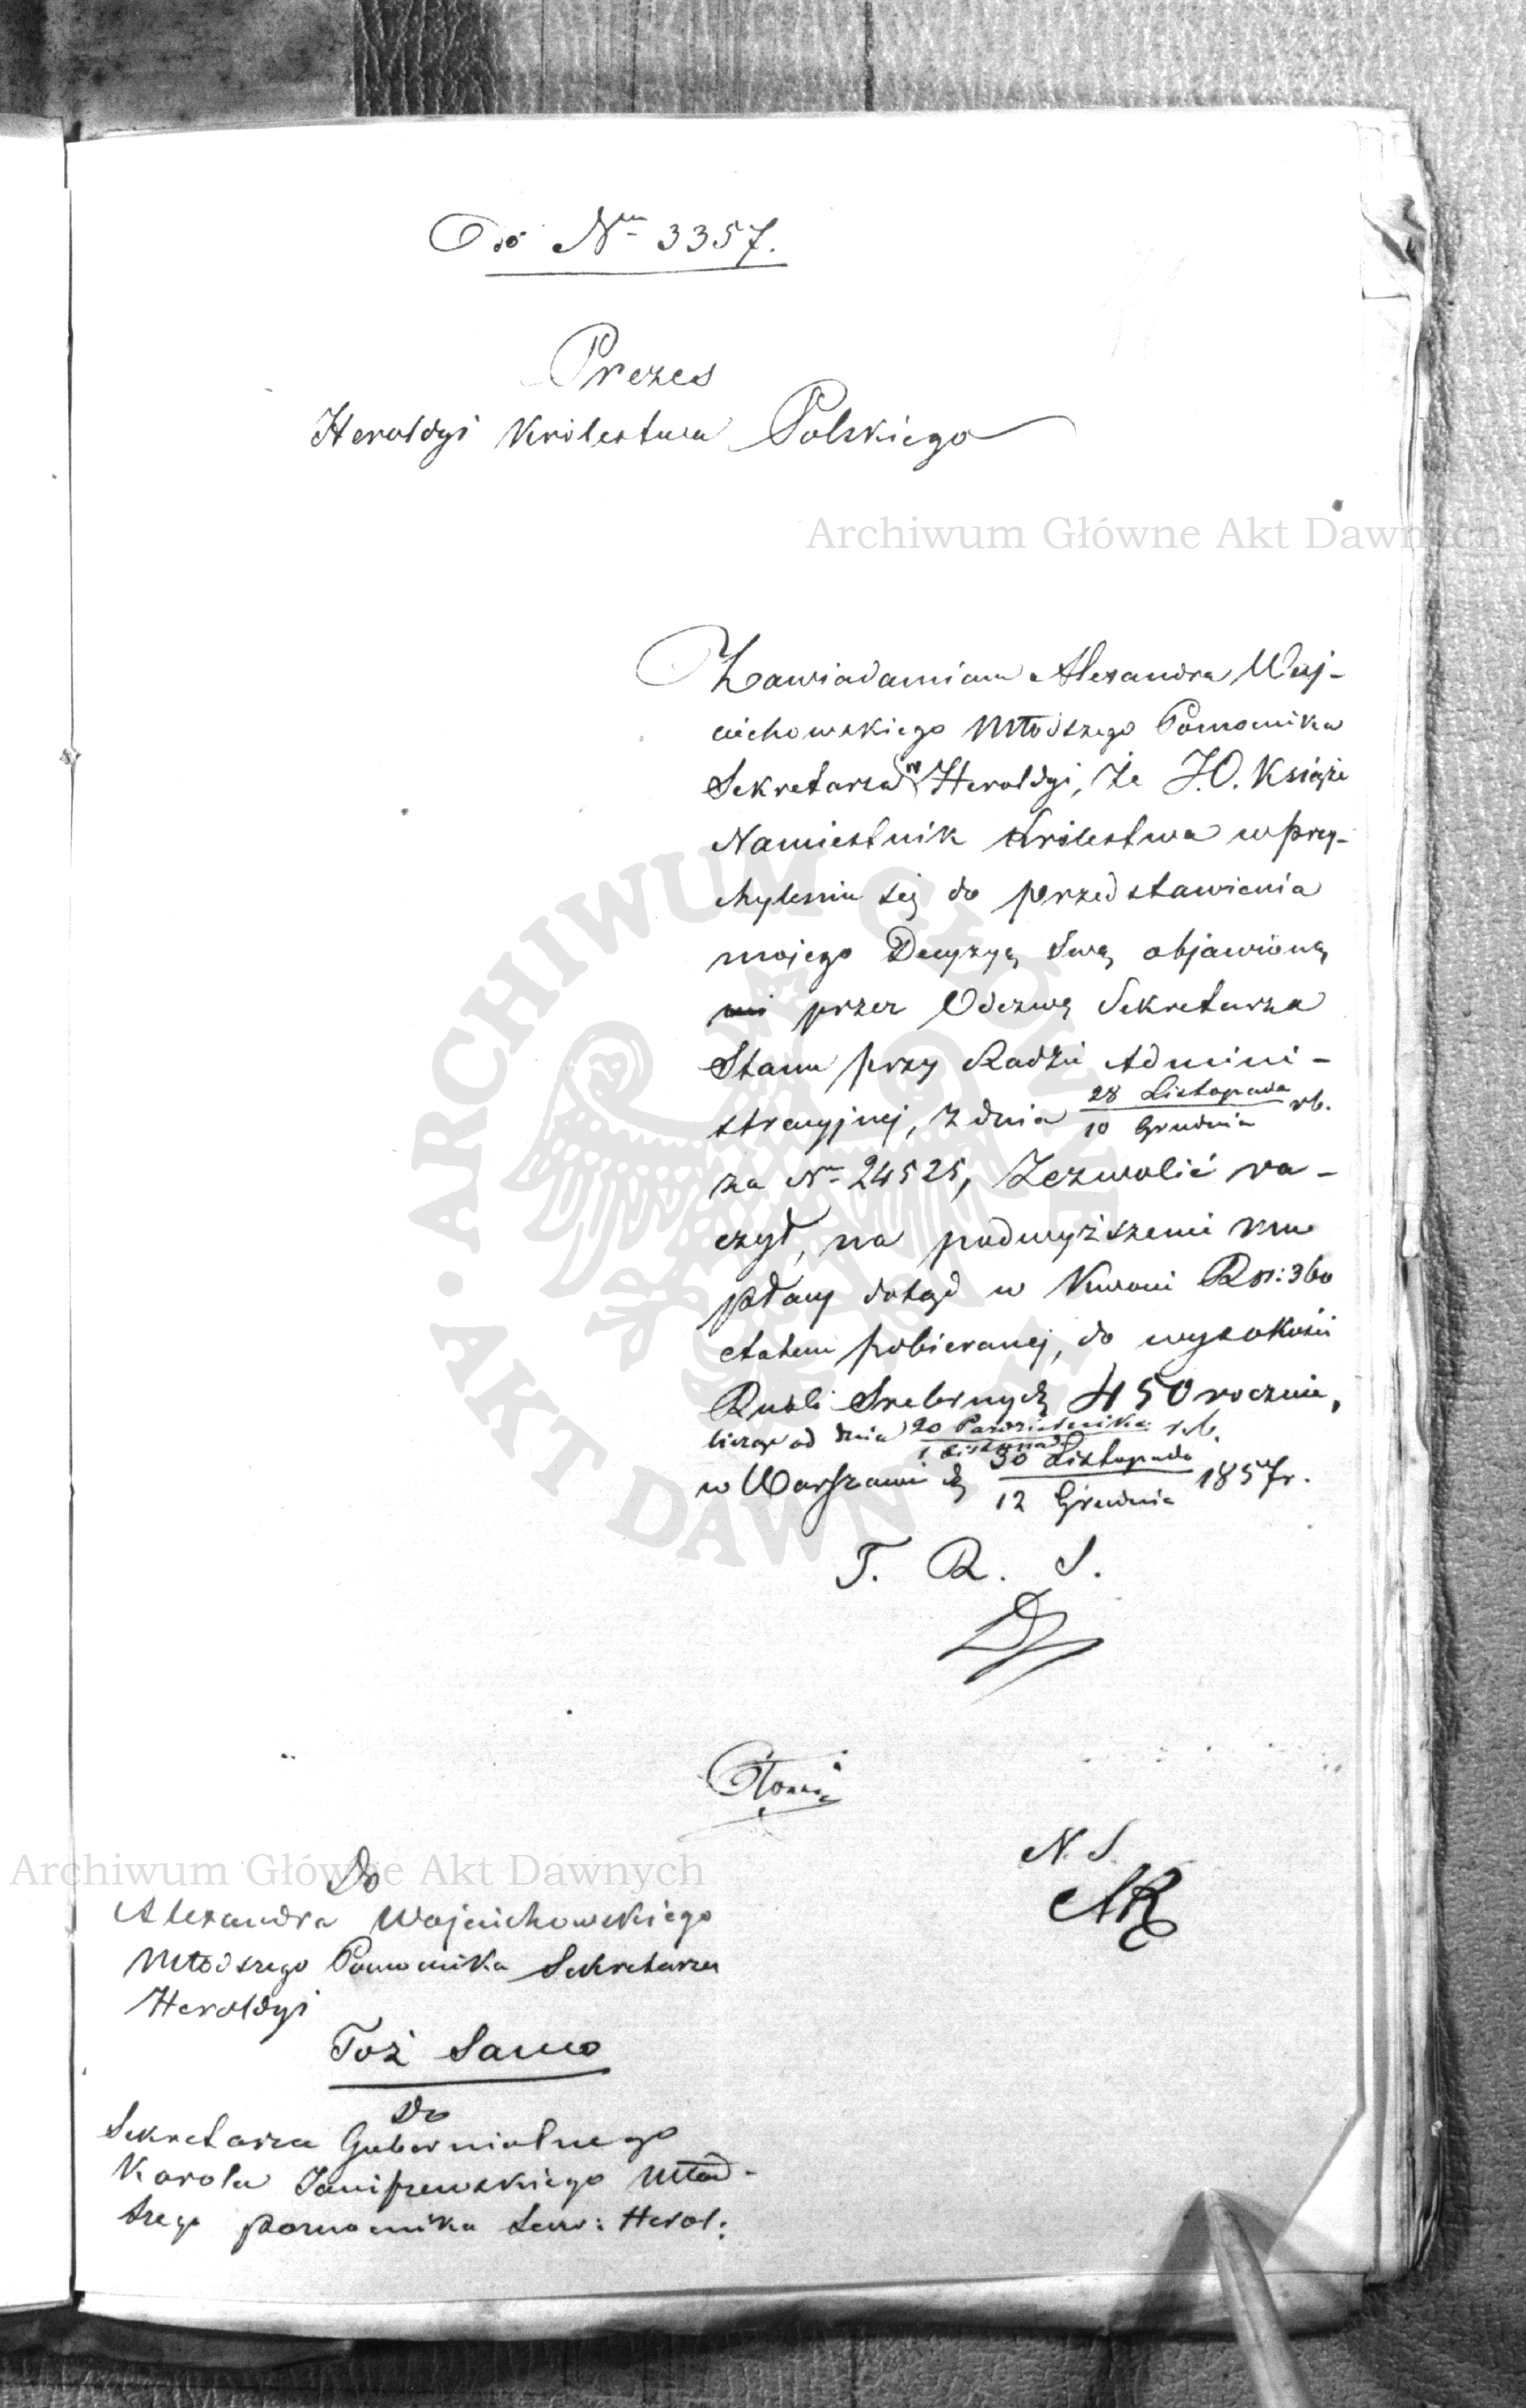 Do Nru 3357.
Prezes
Heroldyi Królestwa Polskiego
Archiwum Główne Akt Dawnych
Zawiadamiam Alexandra Woj-
ciechowskiego Młodszego Pomocnika
Sekretarza w Heroldyi, że J.O. Książe
Namiestnik Królestwa w przy-
chyleniu się do przedstawienia
mojego Decyzyą Swą objawioną
mi przez Odezwę Sekretarza
Stanu przy Radzie Admini-
stracyjnej, z dnia 28 Listopada / 10 Grudnia rb.
za Nr 24525, Zezwolić ra-
czył, na podwyższenie mu
płacy dotąd w Kwocie Rsr: 360
etatem pobieranej, do wysokości
Rubli Srebrnych 450 rocznie,
licząc od dnia 20 Października / 1 Listopada r.b.
w Warszawie d. 30 Listopada / 12 Grudnia 1857 r.
ARCHIWUM GŁÓWNE AKT DAWNYCH
T. R. S.
N. S.
AR
Archiwum Główne Akt Dawnych
Do
Alexandra Wojciechowskiego
Młodszego Pomocnika Sekretarza
Heroldyi
Toż Samo
Do
Sekretarza Gubernialnego
Karola Janiszewskiego Młod-
szego pomocnika Herol: